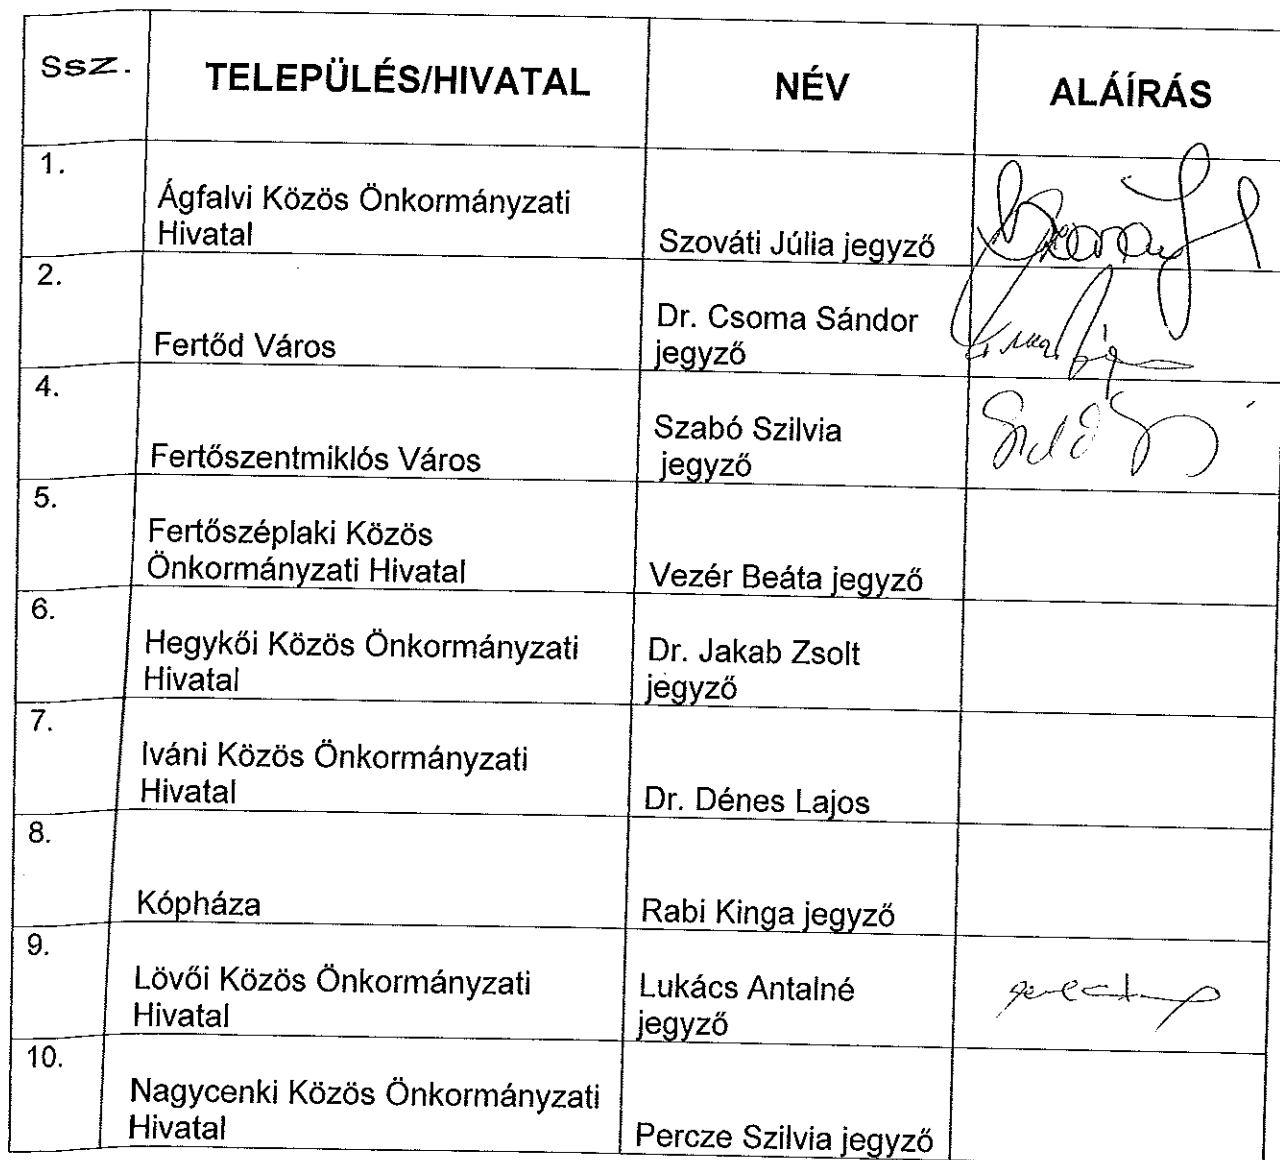 Ssz. TELEPÜLÉS/HIVATAL NÉV ALÁÍRÁS
1.
Ágfalvi Közös Önkormányzati
Hivatal
Szováti Júlia jegyző
2.
Fertőd Város
Dr. Csoma Sándor
jegyző
4.
Fertőszentmiklós Város
Szabó Szilvia
jegyző
5.
Fertőszéplaki Közös
Önkormányzati Hivatal
Vezér Beáta jegyző
6.
Hegykői Közös Önkormányzati
Hivatal
Dr. Jakab Zsolt
jegyző
7.
Iváni Közös Önkormányzati
Hivatal
Dr. Dénes Lajos
8.
Kópháza
Rabi Kinga jegyző
9.
Lövői Közös Önkormányzati
Hivatal
Lukács Antalné
jegyző
10.
Nagycenki Közös Önkormányzati
Hivatal
Percze Szilvia jegyző